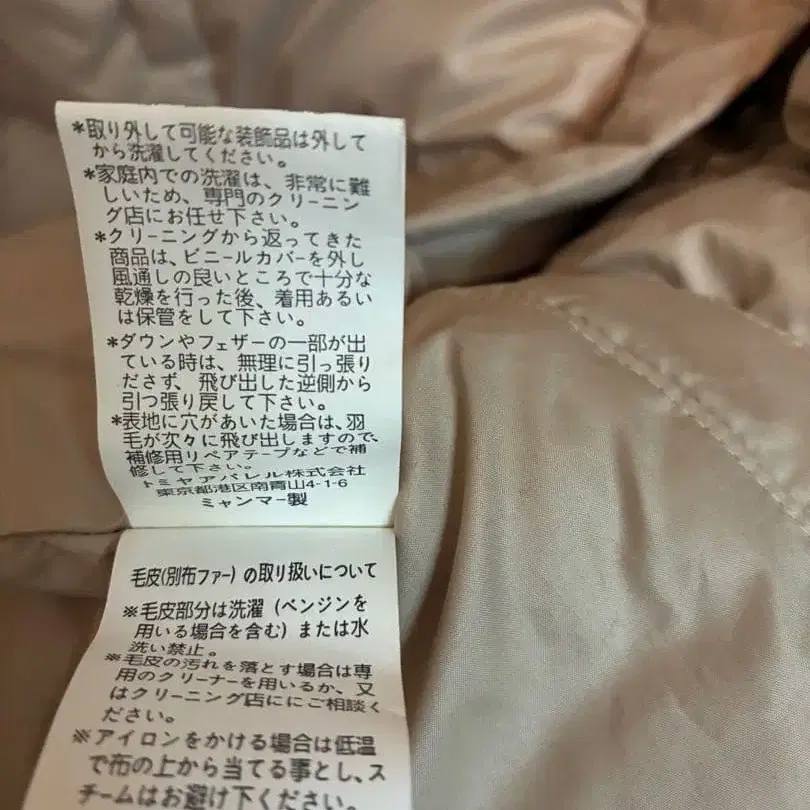 *取り外して可能な装飾品は外して
から洗濯してください。
*家庭内での洗濯は、非常に難
しいため、専門のクリーニン
グ店にお任せ下さい。
*クリーニングから返ってきた
商品は、ビニールカバーを外し
風通しの良いところで十分な
乾燥を行った後、着用あるい
は保管をして下さい。
*ダウンやフェザーの一部が出
ている時は、無理に引っ張り
ださず、飛び出した逆側から
引つ張り戻して下さい。
*表地に穴があいた場合は、羽
毛が次々に飛び出しますので、
補修用リペアテープなどで補
修して下さい。
トミヤアパレル株式会社
東京都港区南青山4-1-6
ミャンマー製
毛皮(別布ファー)の取り扱いについて
※毛皮部分は洗濯(ベンジンを
用いる場合を含む)または水
洗い禁止。
※毛皮の汚れを落とす場合は専
用のクリーナーを用いるか、又
はクリーニング店ににご相談く
ださい。
※アイロンをかける場合は低温
で布の上から当てる事とし、ス
チームはお避け下ください。